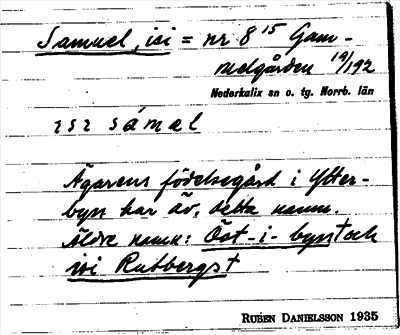 Samuel, isi = nr 8¹⁵ Gam-
melgården 19/192
Nederkalix sn o. tg. Norrb. län
ısı sámel
Ägarens födelsegård i Ytter-
byn har äv. detta namn.
Äldre namn: Öst-i-byn† och
isi Rutbergs†
RUBEN DANIELSSON 1935